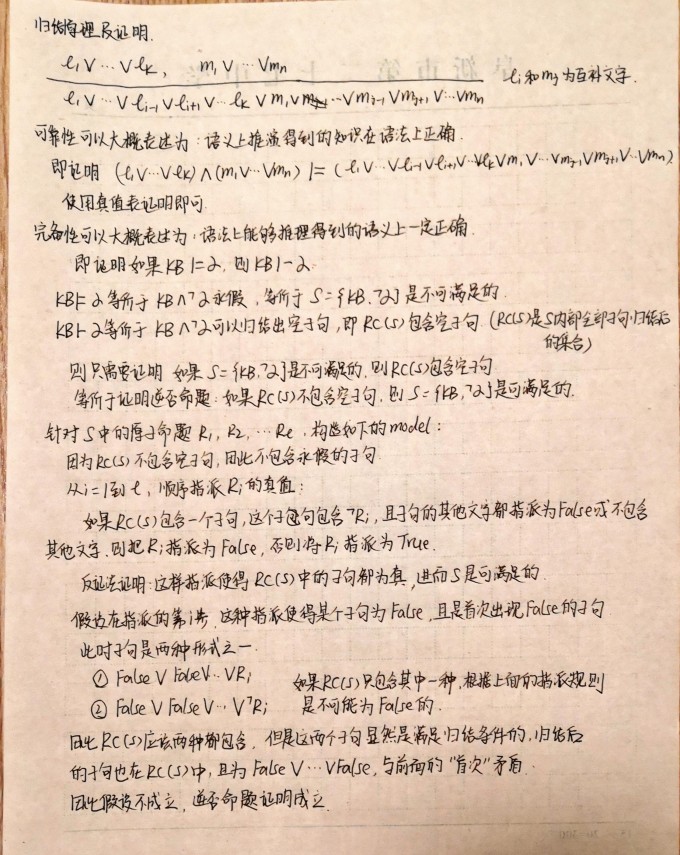 归结原理及证明.
ℓ₁∨…∨ℓk, m₁∨…∨mn
ℓ₁∨…∨ℓi-1∨ℓi+1∨…ℓk∨m₁∨…∨mj-1∨mj+1∨…∨mn ℓi和mj为互补文字.
可靠性可以大概表述为:语义上推演得到的知识在语法上正确.
即证明 (ℓ₁∨…∨ℓk)∧(m₁∨…∨mn) ⊨ (ℓ₁∨…∨ℓi-1∨ℓi+1∨…∨ℓk∨m₁∨…∨mj-1∨mj+1∨…∨mn)
使用真值表证明即可.
完备性可以大概表述为:语法上能够推理得到的语义上一定正确.
即证明如果KB⊨α,则KB⊢α.
KB⊨α等价于KB∧¬α永假,等价于S={KB,¬α}是不可满足的.
KB⊢α等价于KB∧¬α可以归结出空子句,即RC(S)包含空子句(RC(S)是S内部全部子句归结后
的集合)
则只需要证明 如果S={KB,¬α}是不可满足的,则RC(S)包含空子句
等价于证明逆否命题:如果RC(S)不包含空子句,则S={KB,¬α}是可满足的.
针对S中的原子命题R₁,R₂,…Rℓ,构造如下的model:
因为RC(S)不包含空子句,因此不包含永假的子句
从i=1到ℓ,顺序指派Ri的真值:
如果RC(S)包含一个子句,这个子句包含¬Ri,且子句的其他文字都指派为False或不包含
其他文字.则把Ri指派为False,否则将Ri指派为True.
反证法证明:这样指派使得RC(S)中的子句都为真,进而S是可满足的.
假设在指派的第i步,这种指派使得某个子句为False,且是首次出现False的子句
此时子句是两种形式之一.
① False∨False∨…∨Ri 如果RC(S)只包含其中一种,根据上面的指派规则
② False∨False∨…∨¬Ri 是不可能为False的.
因此RC(S)应该两种都包含,但是这两个子句显然是满足归结条件的,归结后
的子句也在RC(S)中,且为False∨…∨False,与前面的"首次"矛盾.
因此假设不成立,逆否命题证明成立.